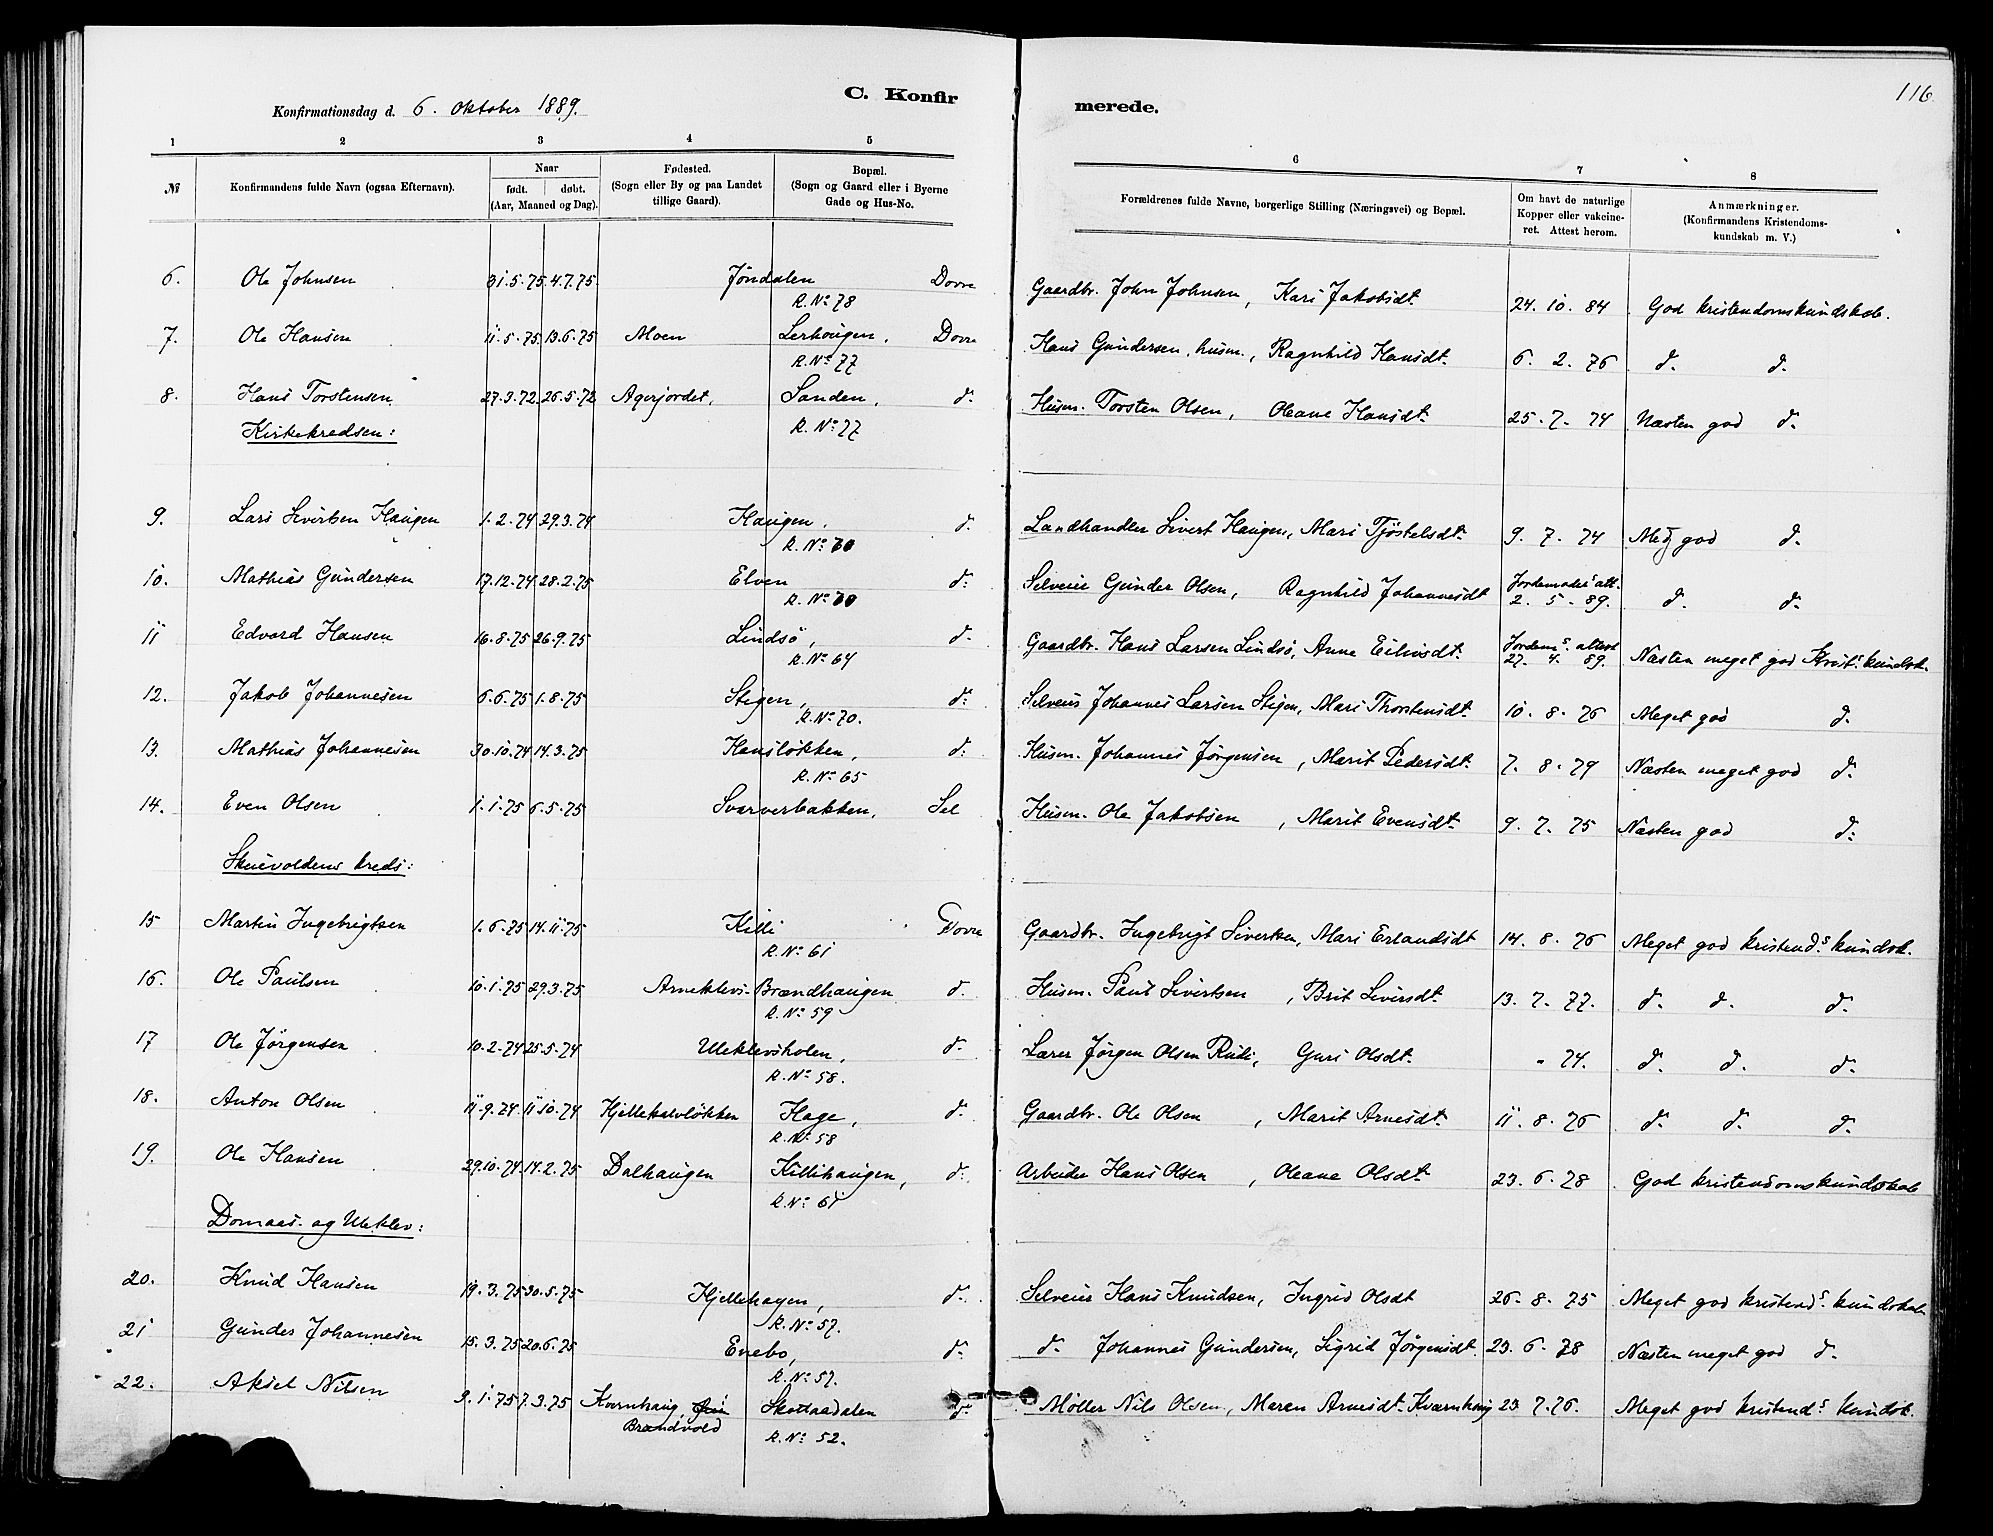 116.
C. Konfirmerede.
Konfirmationsdag d. 6. Oktober 1889.
1 2 3 4 5 6 7 8
№ | Konfirmandens fulde Navn (ogsaa Efternavn). | Naar født. døbt. (Aar, Maaned og Dag). | Fødested. (Sogn eller By og paa Landet tillige Gaard). | Bopæl. (Sogn og Gaard eller i Byerne Gade og Hus-No. | Forældrenes fulde Navne, borgerlige Stilling (Næringsvei) og Bopæl. | Om havt de naturlige Kopper eller vakcineret. Attest herom. | Anmærkninger. (Konfirmandens Kristendomskundskab m. V.)
6. Ole Johnsen 31.5.75. 4.7.75 Jøndalen R. No 78 Dovre Gaardbr. John Johnsen, Kari Jakobsdt. 24. 10. 84 God kristendomskundskab.
7. Ole Hansen 11.5.75. 13.6.75 Moen Lerhougen, R. No 77 Dovre Hans Gundersen, husm., Ragnhild Hansdt. 6. 2. 76 d. d.
8. Hans Torstensen 27.3.72. 26.5.72 Agerjordet, Sanden, R. No 77 d. Husm. Torsten Olsen, Oleane Hansdt. 25. 7. 74 Næsten god d.
Kirkekredsen:
9. Lars Sivertsen Haugen 1.2.74 29.3.74 Haugen, R. No 70 d. Landhandler Sivert Haugen, Mari Tjøstelsdt. 9. 7. 74 Meg. god d.
10. Mathias Gundersen 17.12.74 28.2.75 Elven R. No 70 d. Selveier Gunder Olsen, Ragnhild Johannesdt Jordemoders att. 2. 5. 89. d. d.
11 Edvard Hansen 16.8.75 26.9.75 Lindsø, R. No 64 d. Gaardbr. Hans Larsen Lindsø, Anne Eilivsdt. Jordems. attest 27. 4. 89. Næsten meget god Krist.s kundsk.
12. Jakob Johannesen 6.6.75 1.8.75 Stigen, R. No 70. d. Selveier Johannes Larsen Stigen, Mari Thorstensdt. 10. 8. 76 Meget god d.
13. Mathias Johannesen 30.10.74 14.3.75 Hansløkken, R. No 65 d. Husm. Johannes Jørgensen, Marit Pedersdt. 7. 8. 79 Næsten meget god d.
14. Even Olsen 1.1.75 6.5.75 Svarverbakken, Sel Husm. Ole Jakobsen, Marit Evensdt. 9. 7. 75 Næsten god d.
Skuevoldens kreds:
15 Martin Ingebrigtsen 1.6.75 14.11.75 Killi R. No 61 Dovre Gaardbr. Ingebrigt Sivertsen, Mari Erlandsdt 14. 8. 76 Meget god kristend.s kundsk.
16. Ole Paulsen 10.1.75 29.3.75 Arneklevs-Brændhaugen R. No 59 d. Husm. Paul Sivertsen, Brit Siversdt. 13. 7. 77. d. d. d.
17 Ole Jørgensen 10.2.74 25.5.74 Uleklevsholen, R. No 58. d. Lærer Jørgen Olsen Rudi, Guri Olsdt. " 74. d. d. d.
18. Anton Olsen 11.9.74 11.10.74 Hjellekalvløkken Hage, R. No 58 d. Gaardbr. Ole Olsen, Marit Arnesdt. 11. 8. 76 d. d. d.
19. Ole Hansen 29.10.74 14.2.75 Dalhaugen Killihaugen, R. No 61 d. Arbeider Hans Olsen, Oleane Olsdt. 23. 6. 78 God kristendomskundskab
Domaas- og Uleklev:
20. Knud Hansen 19.3.75 30.5.75 Hjellehagen, R. No 57. d. Selveier Hans Knudsen, Ingrid Olsdt 26. 8. 75 Meget god kristend.s kundskab
21 Gunder Johannesen 15.3.75 20.6.75 Enebo, R. No 57. d. d. Johannes Gundersen, Sigrid Jørgensdt. 23. 6. 78 Næsten meget god d.
22. Aksel Nilsen 9.1.75 7.3.75 Kvernhaug Brændvold Skotaadalen R. No 52. d. Møller Nils Olsen, Maren Arnesdt. Kværnhaug 23 7.76. Meget god kristend.s kundsk.